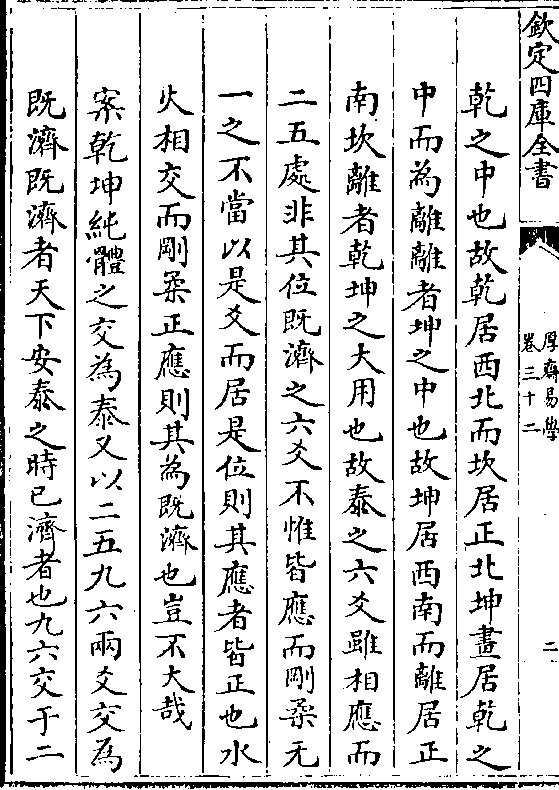 欽定四庫全書
厚齋易學
卷三十二
二
乾之中也故乾居西北而坎居正北坤畫居乾之
中而為離離者坤之中也故坤居西南而離居正
南坎離者乾坤之大用也故泰之六爻雖相應而
二五處非其位既濟之六爻不惟皆應而剛柔无
一之不當以是爻而居是位則其應者皆正也水
火相交而剛柔正應則其為既濟也豈不大哉
案乾坤純體之交為泰又以二五九六兩爻交為
既濟既濟者天下安泰之時已濟者也九六交于二